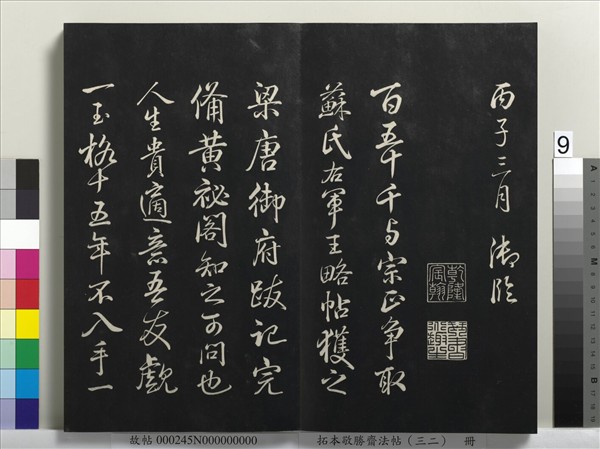 丙子三月 御臨
乾隆宸翰
百五十千与宗正争取
蘇氏右軍王略帖獲之
梁唐御府跋記完
備黄祕閣知之可問也
人生貴適意吾友覷
一玉格十五年不入手一
故帖 000245N000000000 拓本敬勝齋法帖(三二) 冊
9